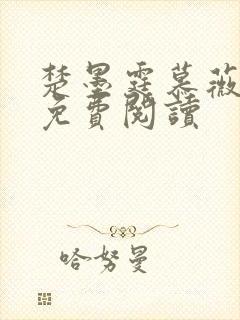 楚墨霆慕薇
免費閱讀
哈努曼